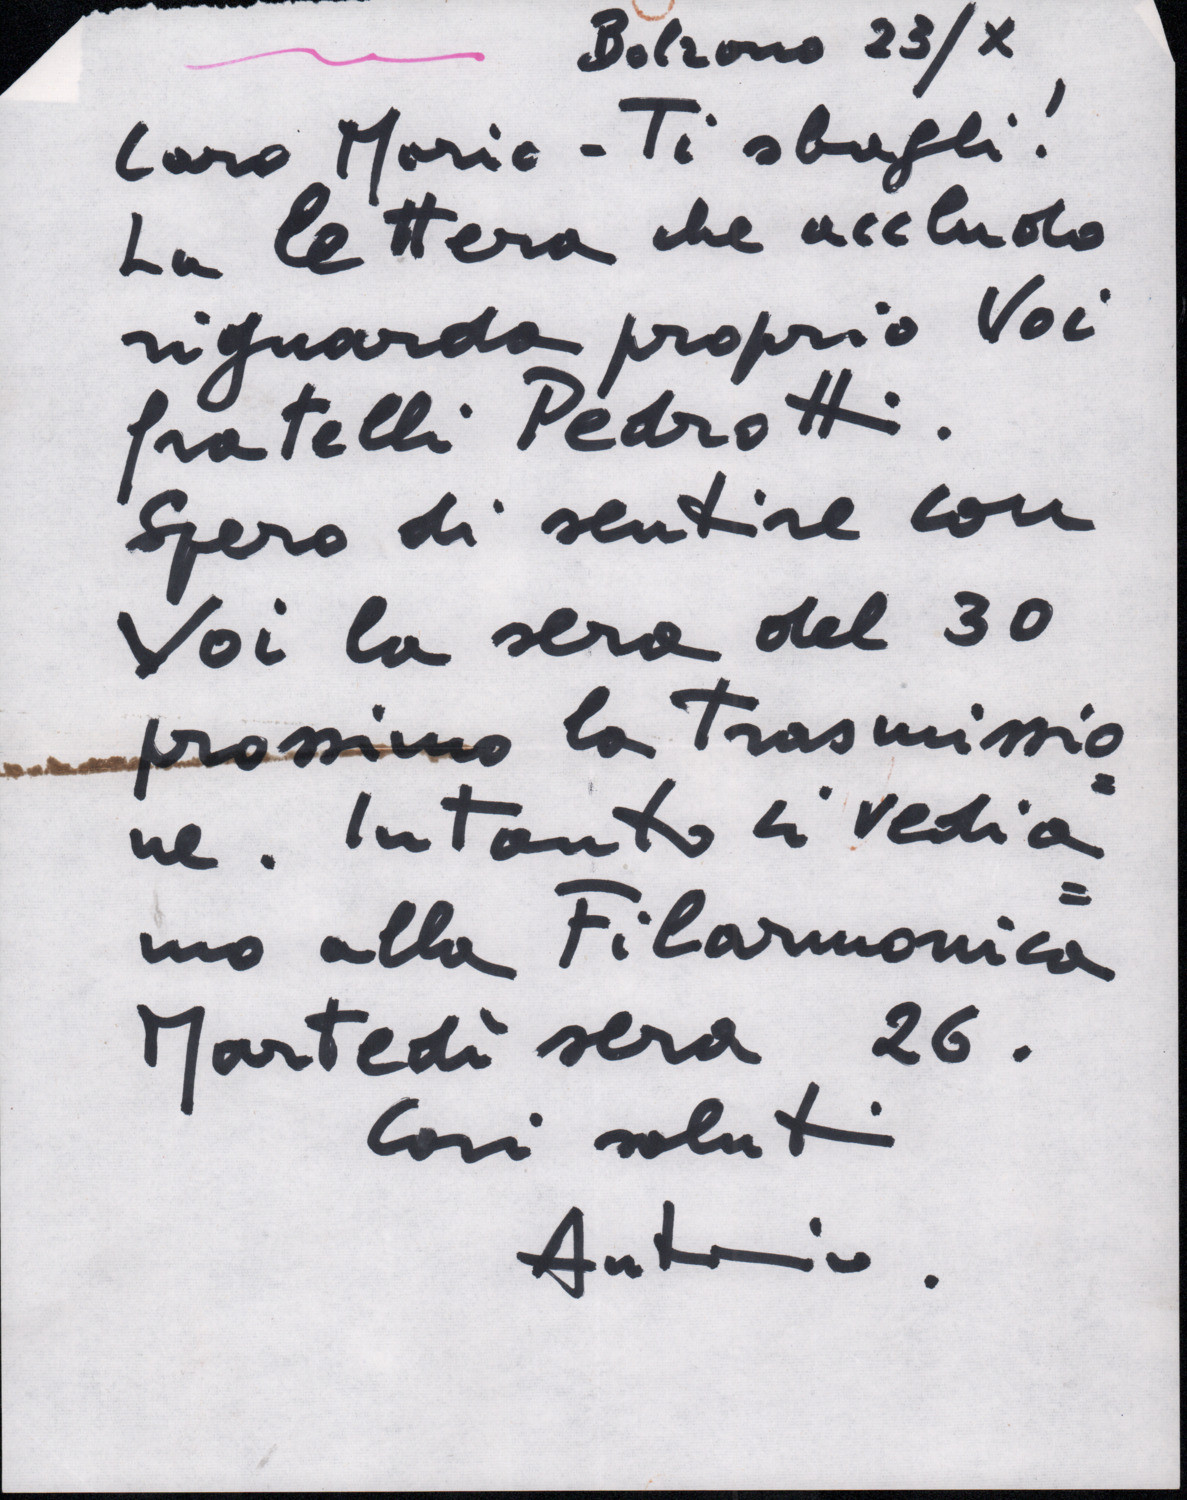 Bolzano 23/X
Caro Mario - Ti sbagli!
La lettera che accludo
riguarda proprio Voi
fratelli Pedrotti.
Spero di sentire con
Voi la sera del 30
prossimo la trasmissio=
ne. Intanto ci vedia=
mo alla Filarmonica
Martedì sera 26.
Cari saluti
Antonio.